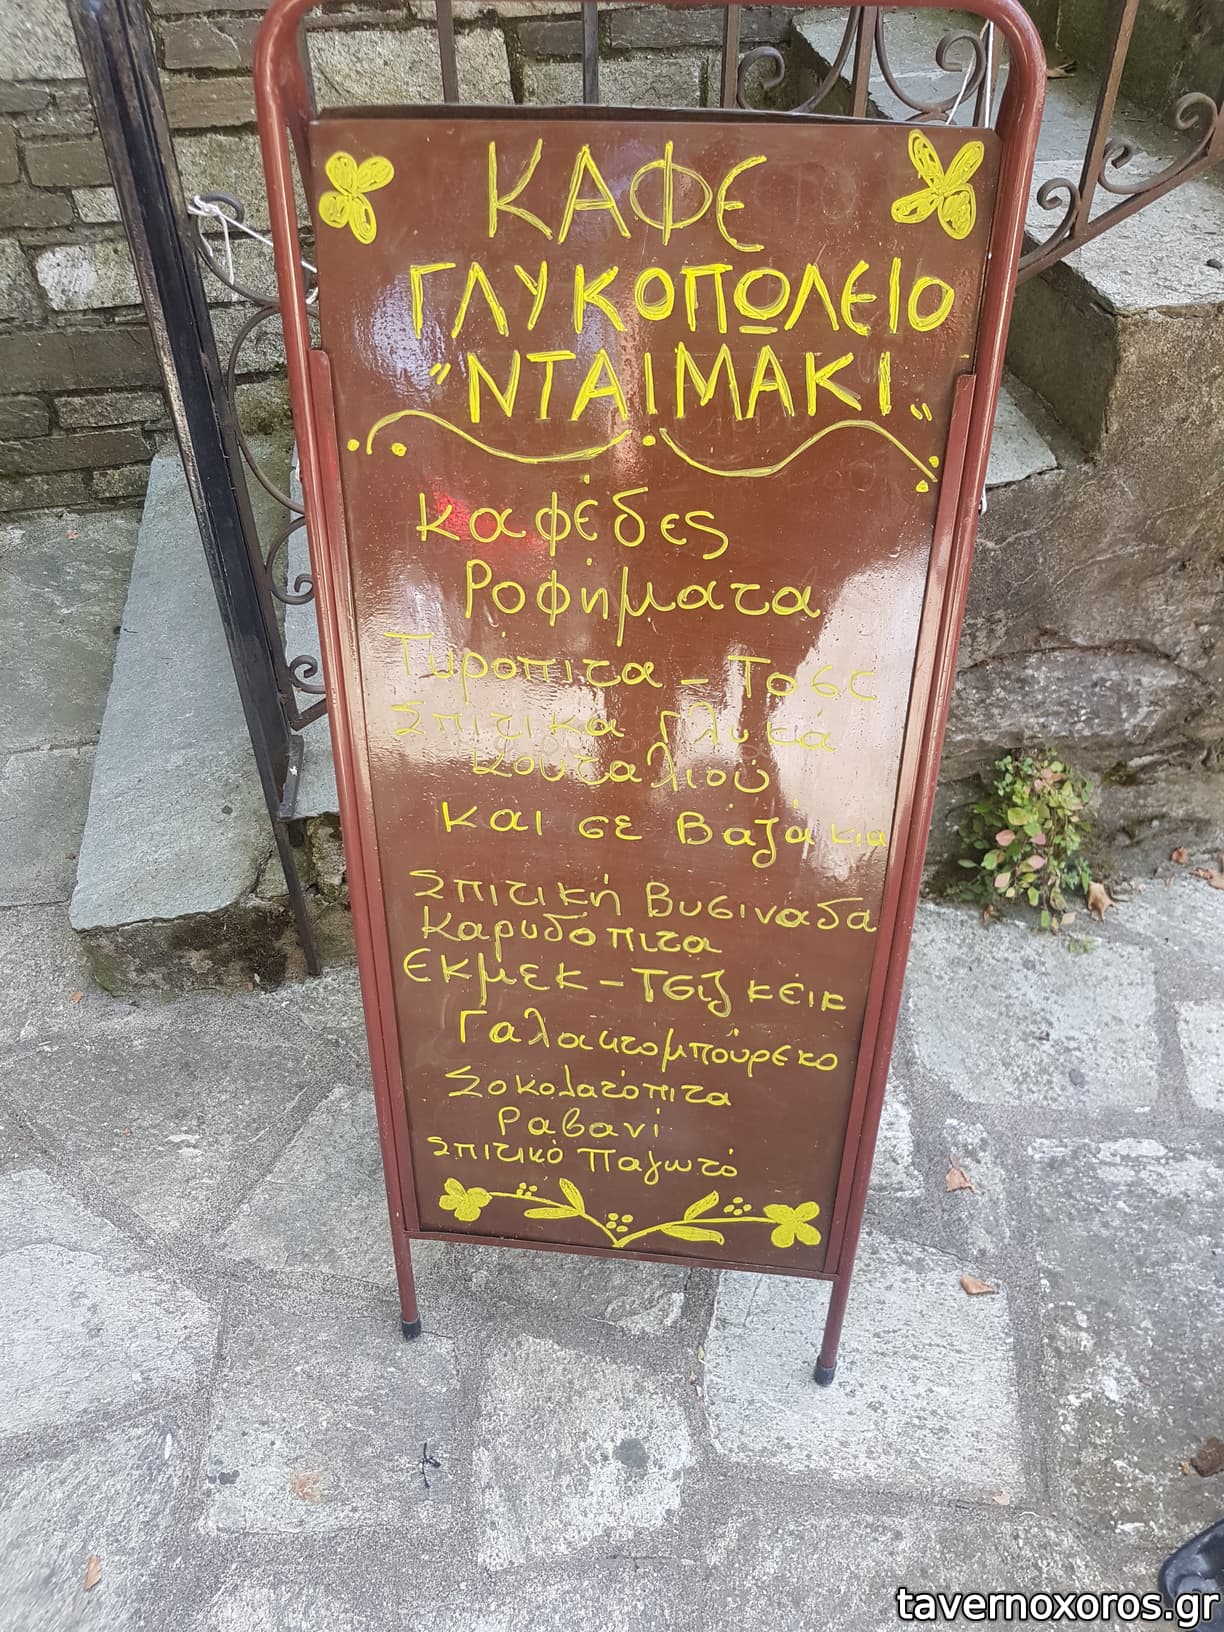 ΚΑΦΕ
ΓΛΥΚΟΠΩΛΕΙΟ
"ΝΤΑΙΜΑΚΙ"
Καφέδες
Ροφήματα
Τυρόπιτα - Τοστ
Σπιτικα Γλυκά
Κουταλιού
και σε Βαζάκια
Σπιτική Βυσινάδα
Καρυδόπιτα
Εκμεκ - Τσιζ κέικ
Γαλακτομπούρεκο
Σοκολατόπιτα
Ραβανί
Σπιτικό Παγωτό
tavernoxoros.gr